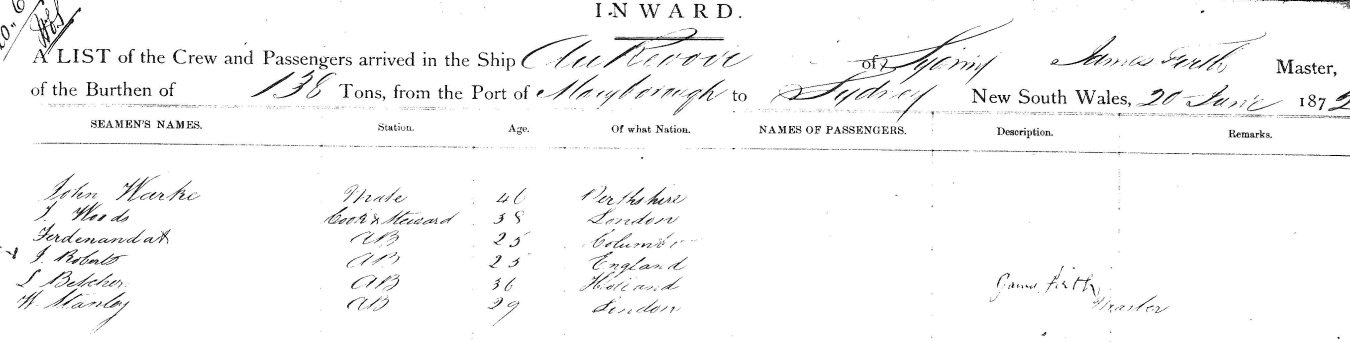 INWARD.
A LIST of the Crew and Passengers arrived in the Ship Au Revoir of Sydney James Firth Master,
of the Burthen of 138 Tons, from the Port of Maryborough to Sydney New South Wales, 20 June 1872
SEAMEN'S NAMES. Station. Age. Of what Nation. NAMES OF PASSENGERS. Description. Remarks.
John Warke Mate 46 Perthshire
J. Woods Cook & Steward 38 London
Ferdenand AB 25
J. Roberts AB 25 England
S Betcher AB 36 Holland
W. Stanley AB 29 London
James Firth
Master